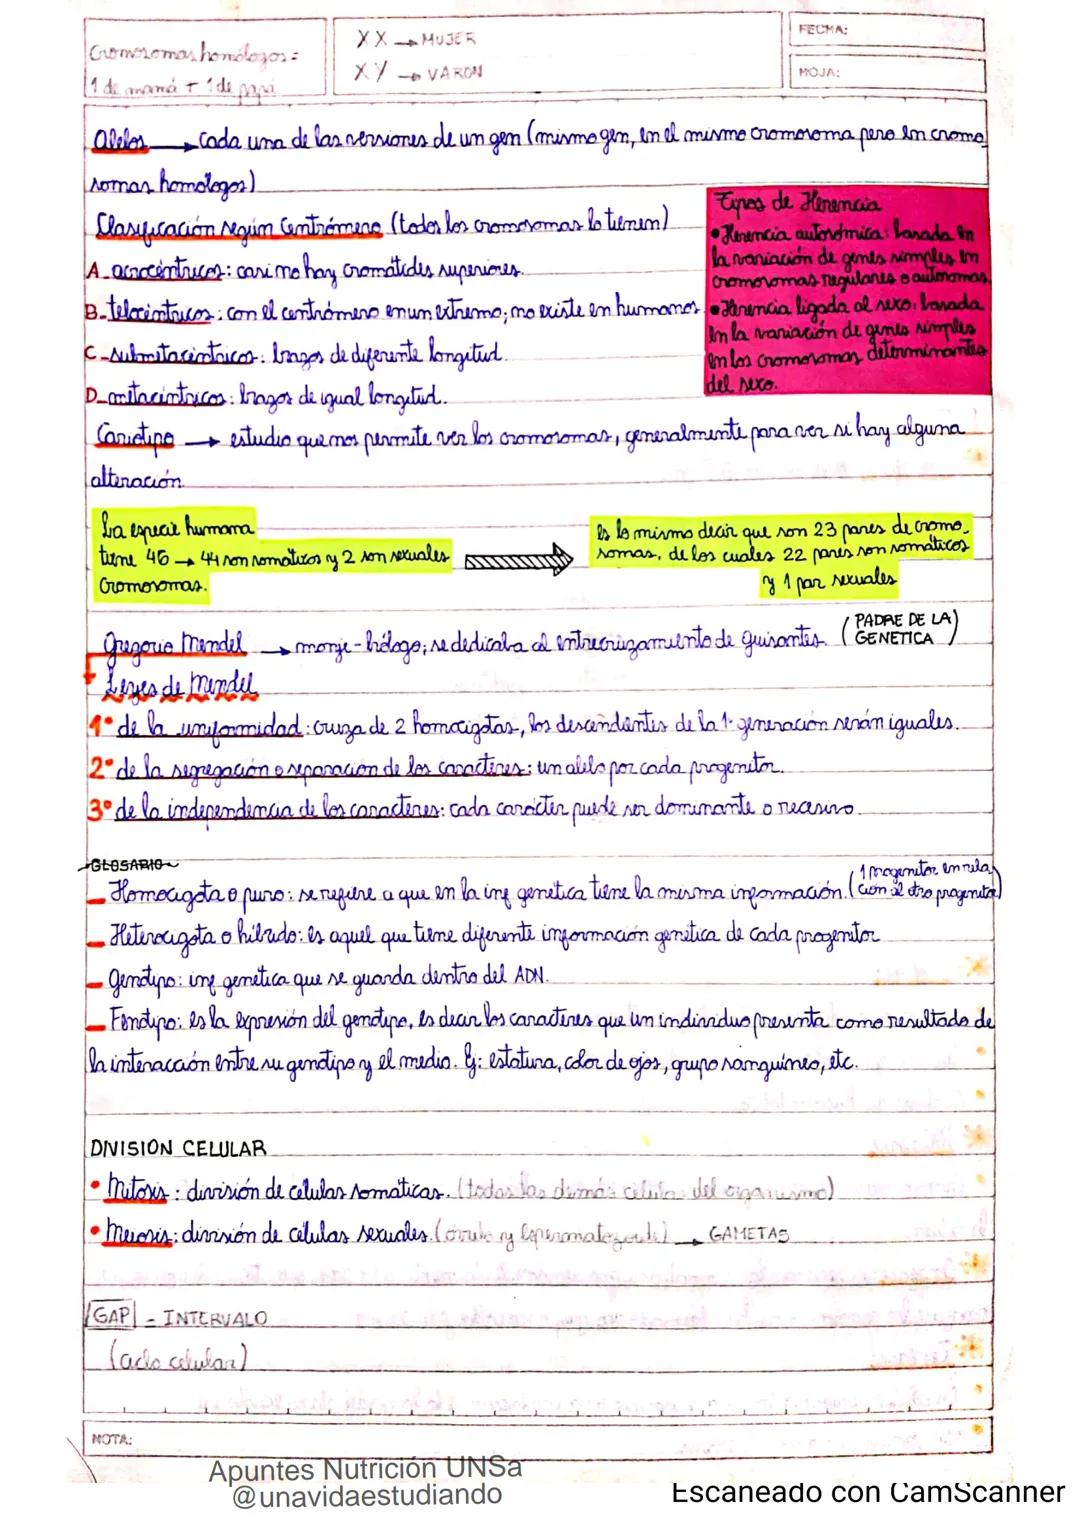 Cromosomas homólogos =
1 de mamá + 1 de papá
XX → MUJER
XY → VARON
FECHA:
HOJA:
Alelos → cada una de las versiones de un gen (mismo gen, en el mismo cromosoma pero en cromo
somas homologos)
Clasificación según Centrómero (todos los cromosomas lo tienen)
A_ acrocéntricos: casi no hay cromátides superiores.
B_ telocéntricos: con el centrómero en un extremo; no existe en humanos
C_ submetacéntricos: brazos de diferente longitud.
D_ metacéntricos: brazos de igual longitud.
Tipos de Herencia
• Herencia autosómica: basada en
la variación de genes simples en
cromosomas regulares o autosomas.
• Herencia ligada al sexo: basada
en la variación de genes simples
en los cromosomas determinantes
del sexo.
Cariotipo → estudio que nos permite ver los cromosomas, generalmente para ver si hay alguna
alteración
La especie humana
tiene 46 → 44 son somáticos y 2 son sexuales
Cromosomas.
es lo mismo decir que son 23 pares de cromo_
somas, de los cuales 22 pares son somáticos
y 1 par sexuales
Gregorio Mendel → monje-biólogo; se dedicaba al entrecruzamiento de guisantes. (PADRE DE LA
GENETICA)
Leyes de Mendel
1° de la uniformidad: cruza de 2 homocigotas, los descendientes de la 1° generación serán iguales.
2° de la segregación o separación de los caracteres: un alelo por cada progenitor.
3° de la independencia de los caracteres: cada carácter puede ser dominante o recesivo.
GLOSARIO
_ Homocigota o puro: se refiere a que en la inf genética tiene la misma información. (1 progenitor en rela
ción al otro progenitor)
_ Heterocigota o híbrido: es aquel que tiene diferente información genética de cada progenitor
_ Genotipo: inf genética que se guarda dentro del ADN.
_ Fenotipo: es la expresión del genotipo, es decir los caracteres que un individuo presenta como resultado de
la interacción entre su genotipo y el medio. Ej: estatura, color de ojos, grupo sanguíneo, etc.
DIVISION CELULAR
• Mitosis: división de células somaticas. (todas las demás celulas del organismo)
• Meiosis: división de células sexuales. (óvulo y espermatozoide) → GAMETAS
GAP - INTERVALO
(ciclo celular)
NOTA:
Apuntes Nutrición UNSa
@unavidaestudiando
Escaneado con CamScanner